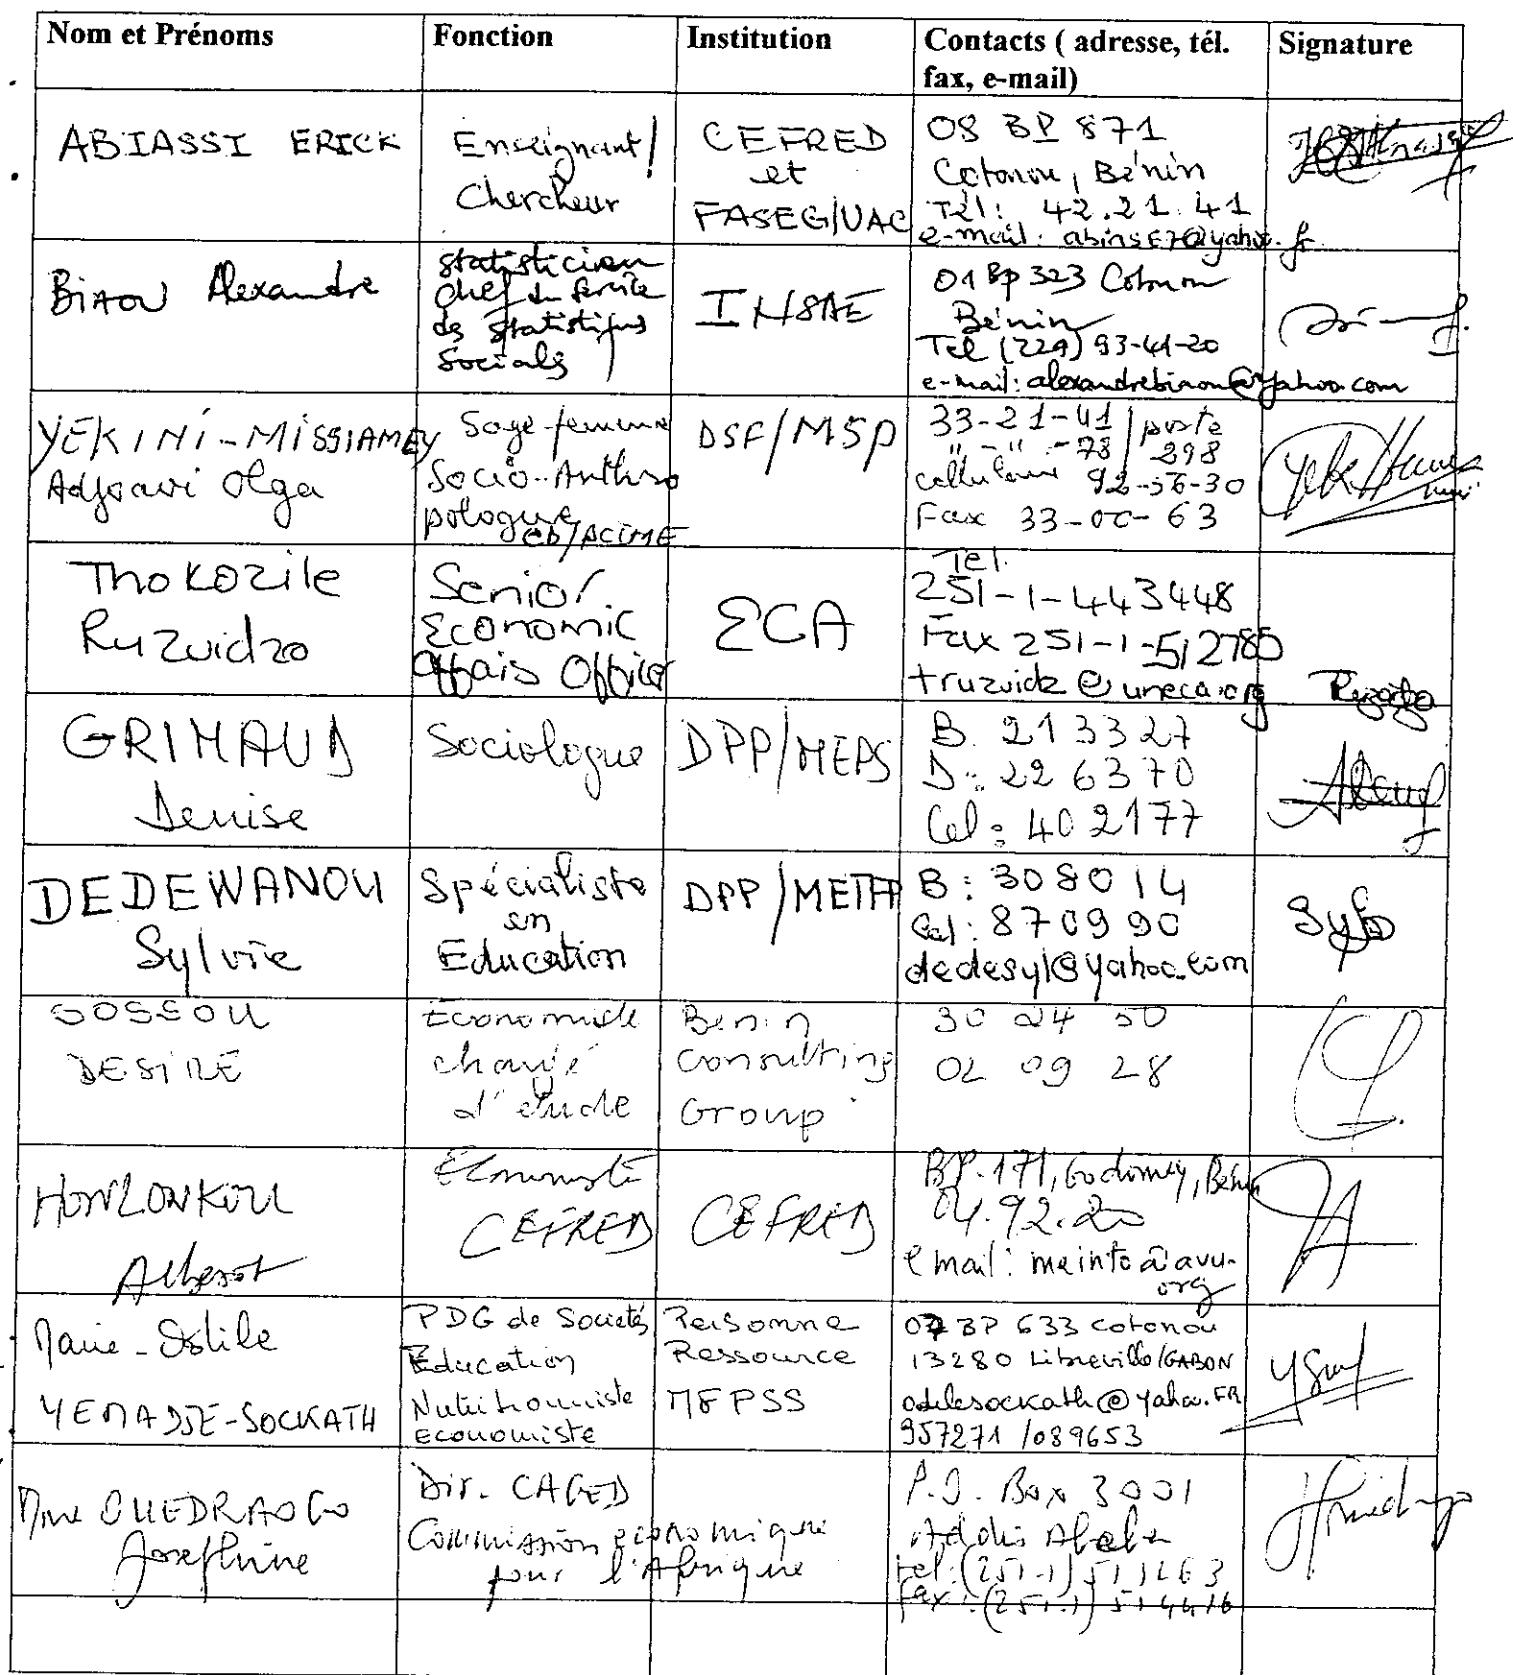 Nom et Prénoms
Fonction
Institution
Contacts ( adresse, tél.
fax, e-mail)
Signature
ABIASSI ERICK
Enseignant/
Chercheur
CEFRED
et
FASEG/UAC
08 BP 871
Cotonou, Bénin
Tél: 42.21.41
e-mail:
Biaou Alexandre
statisticien
chef du service
des statistiques
sociales
INSAE
01 Bp 323 Cotonou
Bénin
Tel (229) 93-41-20
e-mail: alexandrebiaou@yahoo.com
YEKINI-MISSIAMEY
Adjoavi Olga
Sage-femme
Socio-Anthro
pologue
CD/ACIME
DSF/MSP
33-21-41 / poste
" - " - 78 / 298
cellulaire 92-56-30
Fax 33-00-63
Thokozile
Ruzvidzo
Senior
Economic
Affais Officer
ECA
Tel.
251-1-443448
Fax 251-1-512785
truzvidz@uneca.org
GRIMAUD
Denise
Sociologue
DPP/MEPS
B. 213327
D: 226370
Cel: 402177
DEDEWANOU
Sylvie
Spécialiste
en
Education
DPP/METFP
B: 308014
Cel: 870990
dedesyl@yahoo.com
SOSSOU
DESIRE
Economiste
chargé
d'étude
Benin
Consulting
Group
30 24 50
02 09 28
HONLONKOU
Albert
Economiste
CEFRED
CEFRED
BP. 171, Godomey, Bénin
04.92.20
email: meinto@avu.
org
Marie-Odile
YEMADJE-SOCKATH
PDG de Sociétés
Education
Nutritionniste
Economiste
Personne
Ressource
MFPSS
07 BP 633 Cotonou
13280 Libreville/GABON
odilesockath@yahoo.FR
957271 /089653
Mme OUEDRAOGO
Josephine
Dir. CAGED
Commission economique
pour l'Afrique
P.O. Box 3001
Addis Abeba
tel: (251-1) 511263
fax: (251.1) 514416